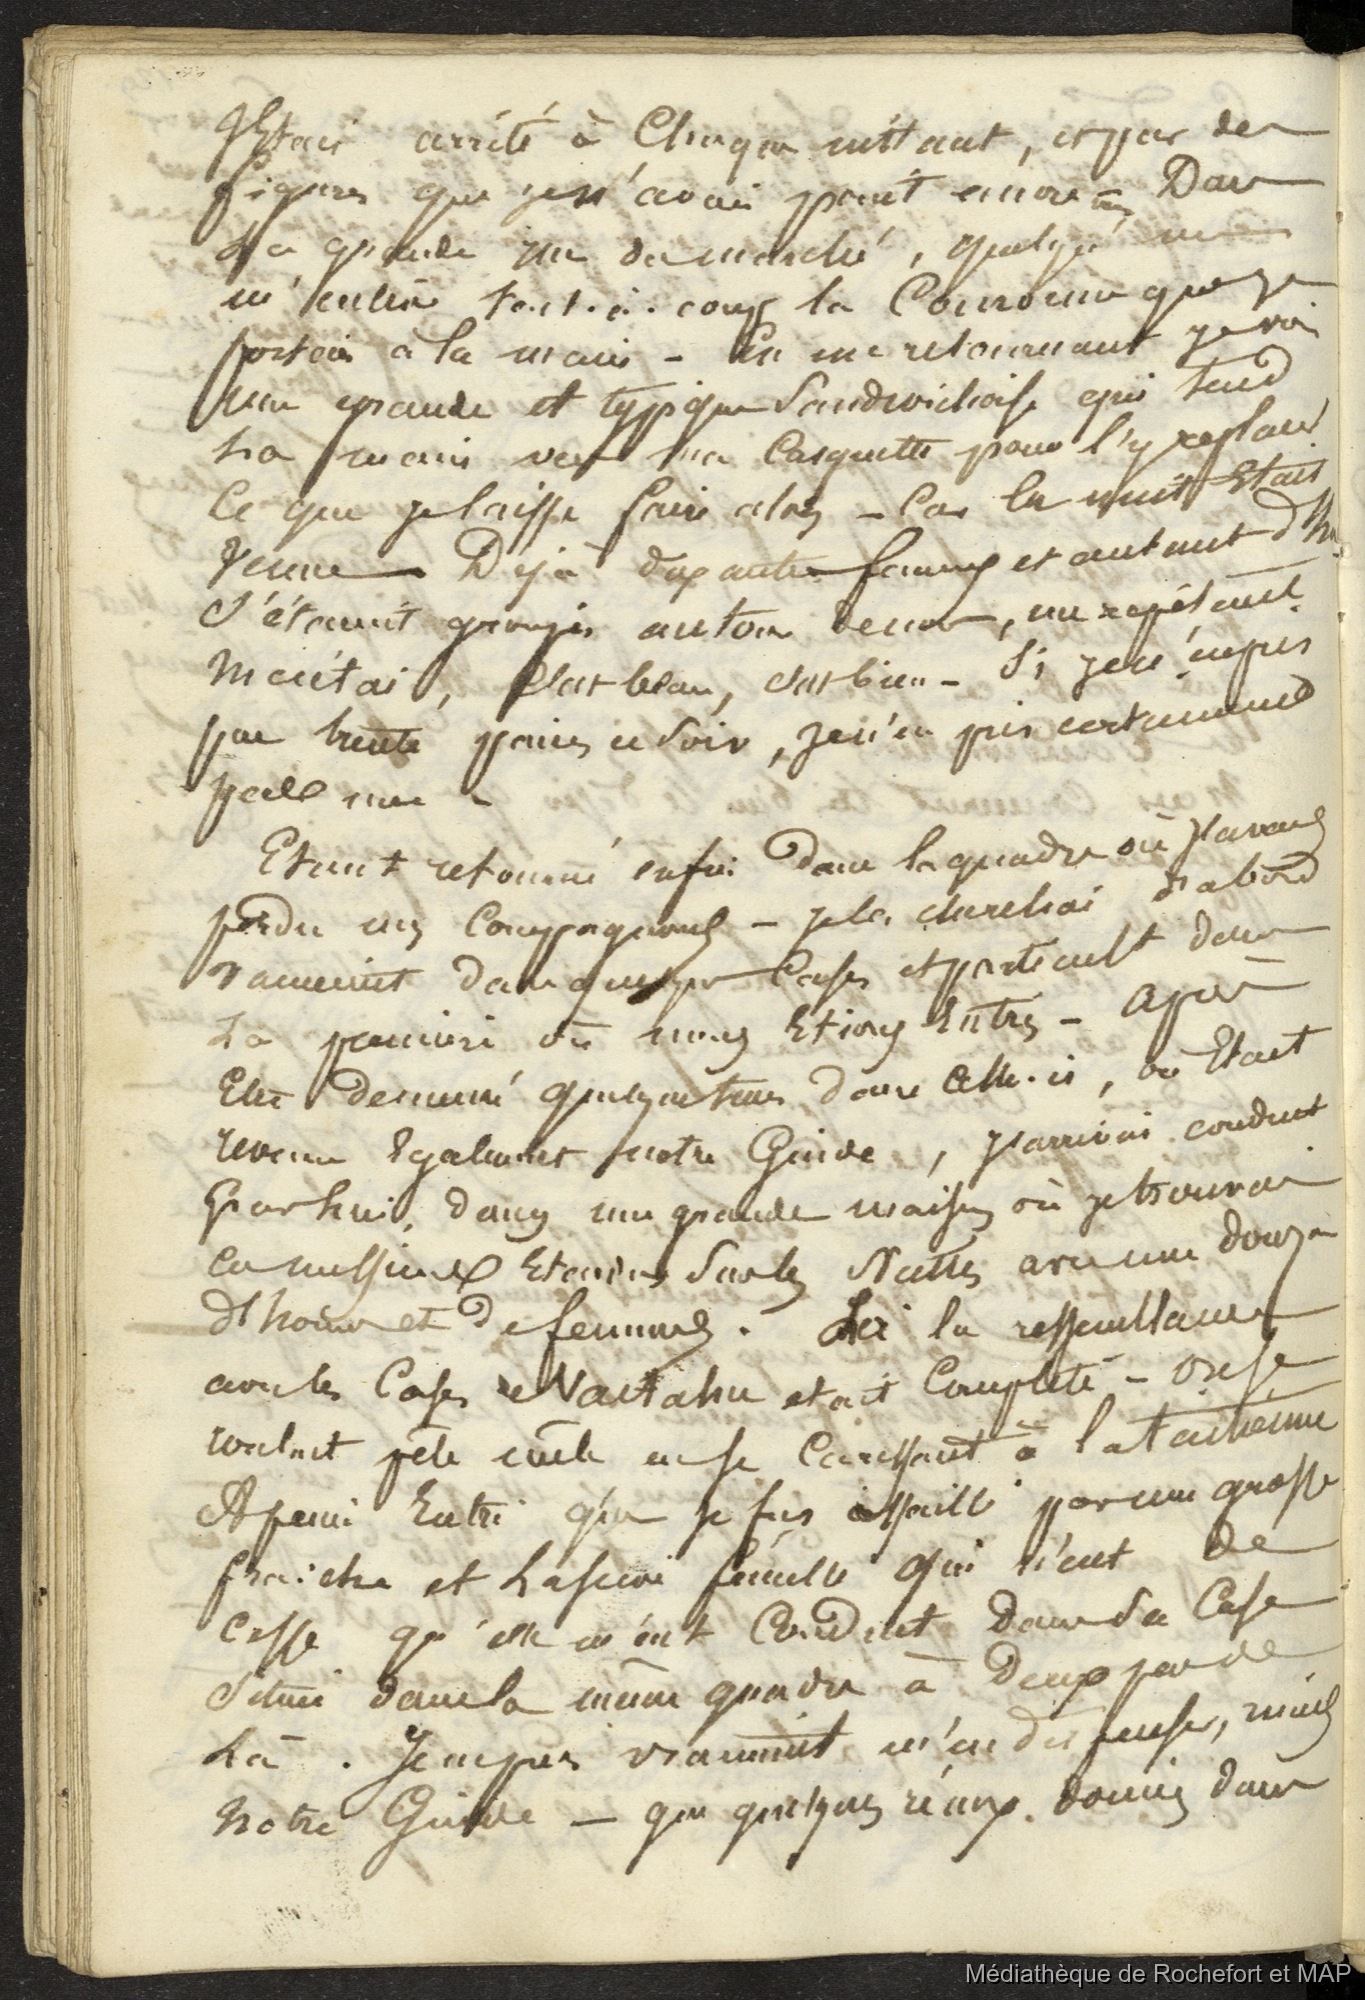 J'Etais arrêté à Chaque instant, et par des
figures que je n'avais point encore vues Dans
La grande rue du marché, quelqu'un
m'enlève tout-à-coup la Couronne que je
portais à la main - En me retournant je vois
une grande et typique Sandwichoise qui tend
La main vers ma Casquette pour l'y replacer
Ce que je laisse faire alors - Car la nuit Etait
Venue Déjà dix autres femmes et autant d'h
S'étaient groupés autour de nous, me répétant
Meitai, C'est beau, c'est bien - Si je n'en pris
par trente paires ce soir, je n'en pris certainement
pas une -
Etant retourné enfin Dans le quadre où j'avais
perdu mes Compagnons - je les cherchai d'abord
vainement dans quelques Cases et partout dans
La première où nous Etions Entrés - après
Etre demeuré quelque tems dans celle-ci, où Etait
revenu Egalement notre Guide, j'arrivai conduit
par lui, dans une grande maison où je trouvai
ces messieurs Etendus sur les Nattes avec une douzne
d'hommes et de femmes. Ici la ressemblance
avec les Cases de était Complète - On se
roulait pêle mêle en se Caressant à la taitienne
A peine Entré que je fus assailli par une grosse
fraiche et Lascive femelle qui n'eut de
Cesse qu'elle m'eut Conduit Dans Sa Case
Située dans le même quadre à Deux pas de
Là. Je ne pus vraiment m'en dispenser, mais
Notre Guide - que quelques réaux donnés dans
Médiathèque de Rochefort et MAP